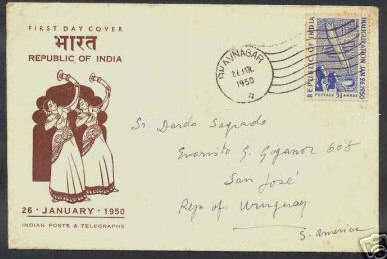 FIRST DAY COVER
भारत
REPUBLIC OF INDIA
26 · JANUARY · 1950
INDIAN POSTS & TELEGRAPHS
BHAVNAGAR
26 JAN.
1950
REPUBLIC OF INDIA
INAUGURATION JAN 26, 1950
POSTAGE 3½ ANNAS
Sr. Dardo Sagrado
Evaristo G. Goganor 608
San José
Rep. of Uruguay
S. America